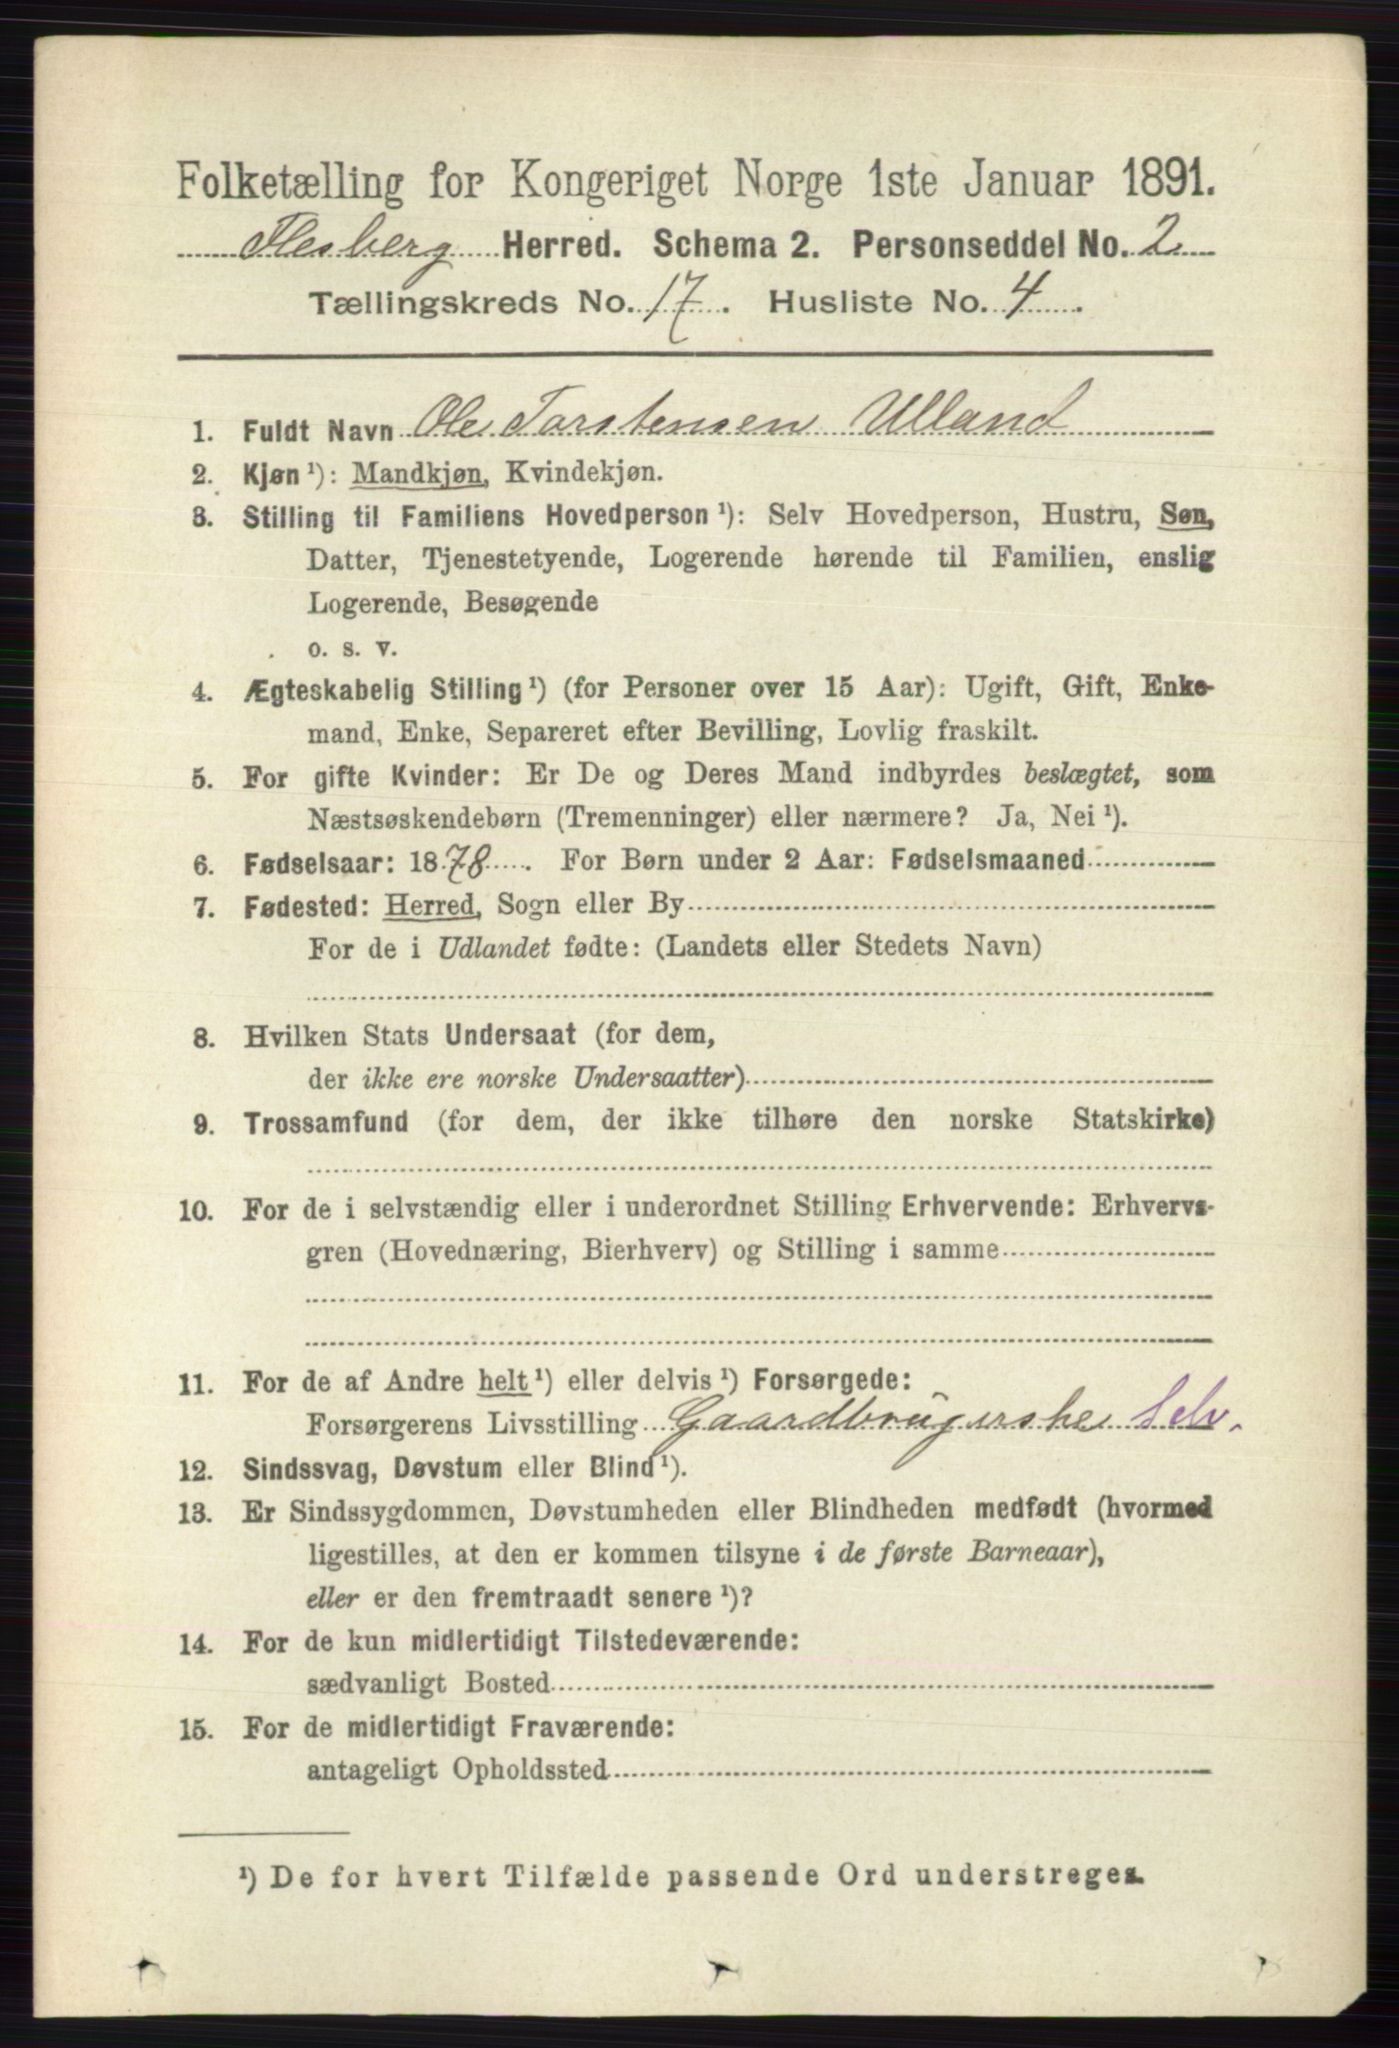 Folketælling for Kongeriget Norge 1ste Januar 1891.
Flesberg Herred. Schema 2. Personseddel No. 2
Tællingskreds No. 17. Husliste No. 4.
1. Fuldt Navn Ole Torstensen Ulland
2. Kjøn ¹): Mandkjøn, Kvindekjøn.
3. Stilling til Familiens Hovedperson ¹): Selv Hovedperson, Hustru, Søn,
Datter, Tjenestetyende, Logerende hørende til Familien, enslig
Logerende, Besøgende
o. s. v.
4. Ægteskabelig Stilling ¹) (for Personer over 15 Aar): Ugift, Gift, Enke-
mand, Enke, Separeret efter Bevilling, Lovlig fraskilt.
5. For gifte Kvinder: Er De og Deres Mand indbyrdes beslægtet, som
Næstsøskendebørn (Tremenninger) eller nærmere? Ja, Nei ¹).
6. Fødselsaar: 1878. For Børn under 2 Aar: Fødselsmaaned
7. Fødested: Herred, Sogn eller By
For de i Udlandet fødte: (Landets eller Stedets Navn)
8. Hvilken Stats Undersaat (for dem,
der ikke ere norske Undersaatter)
9. Trossamfund (for dem, der ikke tilhøre den norske Statskirke)
10. For de i selvstændig eller i underordnet Stilling Erhvervende: Erhvervs-
gren (Hovednæring, Bierhverv) og Stilling i samme
11. For de af Andre helt ¹) eller delvis ¹) Forsørgede:
Forsørgerens Livsstilling Gaardbrugerske Selv.
12. Sindssvag, Døvstum eller Blind ¹).
13. Er Sindssygdommen, Døvstumheden eller Blindheden medfødt (hvormed
ligestilles, at den er kommen tilsyne i de første Barneaar),
eller er den fremtraadt senere ¹)?
14. For de kun midlertidigt Tilstedeværende:
sædvanligt Bosted
15. For de midlertidigt Fraværende:
antageligt Opholdssted
¹) De for hvert Tilfælde passende Ord understreges.